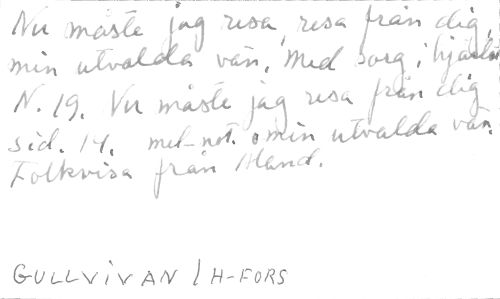 Nu måste jag resa, resa från dig,
min utvalda vän, med sorg i hjärta
N. 19. Nu måste jag resa från dig
sid. 14. mel-not. min utvalda vän.
Folkvisa från Åland.
GULLVIVAN / H-FORS